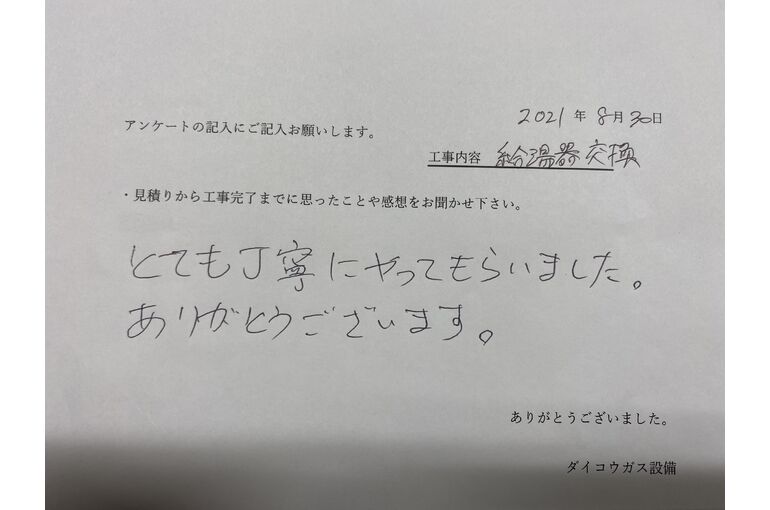 2021年8月30日
アンケートの記入にご記入お願いします。
工事内容 給湯器交換
・見積りから工事完了までに思ったことや感想をお聞かせ下さい。
とても丁寧にやってもらいました。
ありがとうございます。
ありがとうございました。
ダイコウガス設備